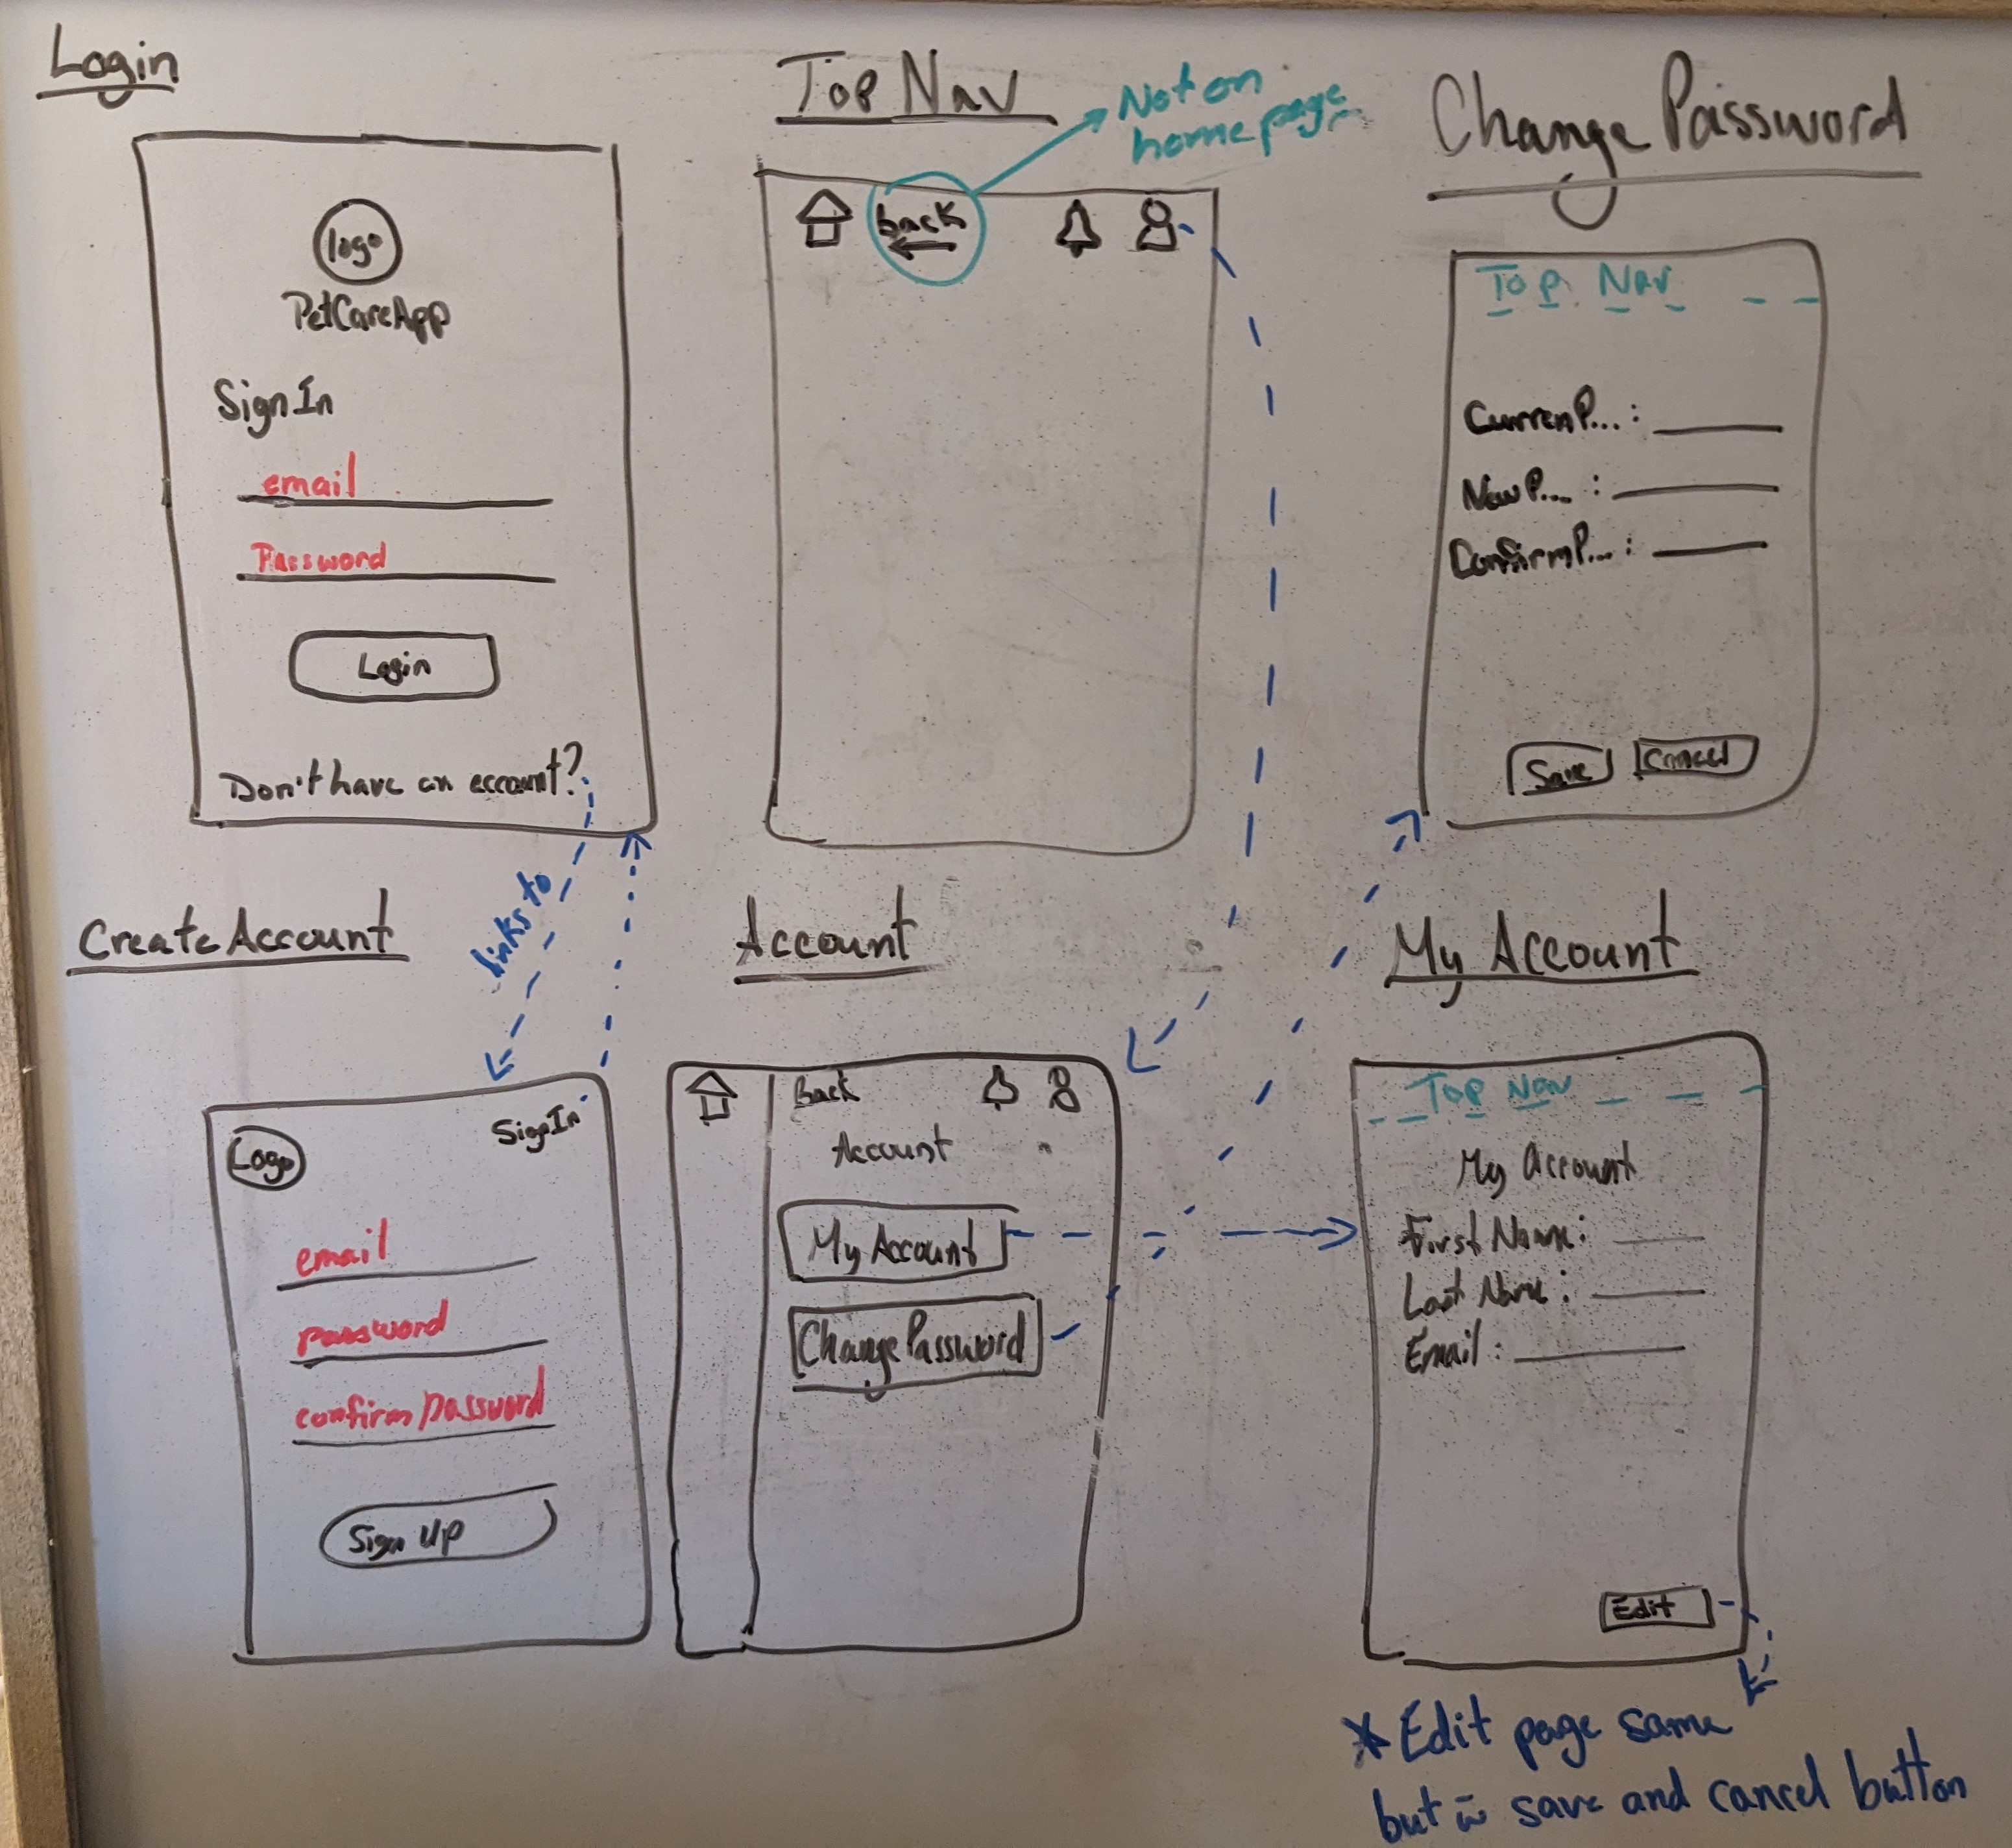 Login
logo
PetCareApp
Sign In
email
Password
Login
Don't have an account?
links to
Top Nav
Not on
homepage
back
Change Password
Top Nav
CurrenP...:
NewP...:
ConfirmP...:
Save
Cancel
Create Account
Logo
SignIn
email
password
confirm password
Sign Up
Account
Back
Account
My Account
Change Password
My Account
Top Nav
My Account
First Name:
Last Name:
Email:
Edit
* Edit page same
but w̄ save and cancel button